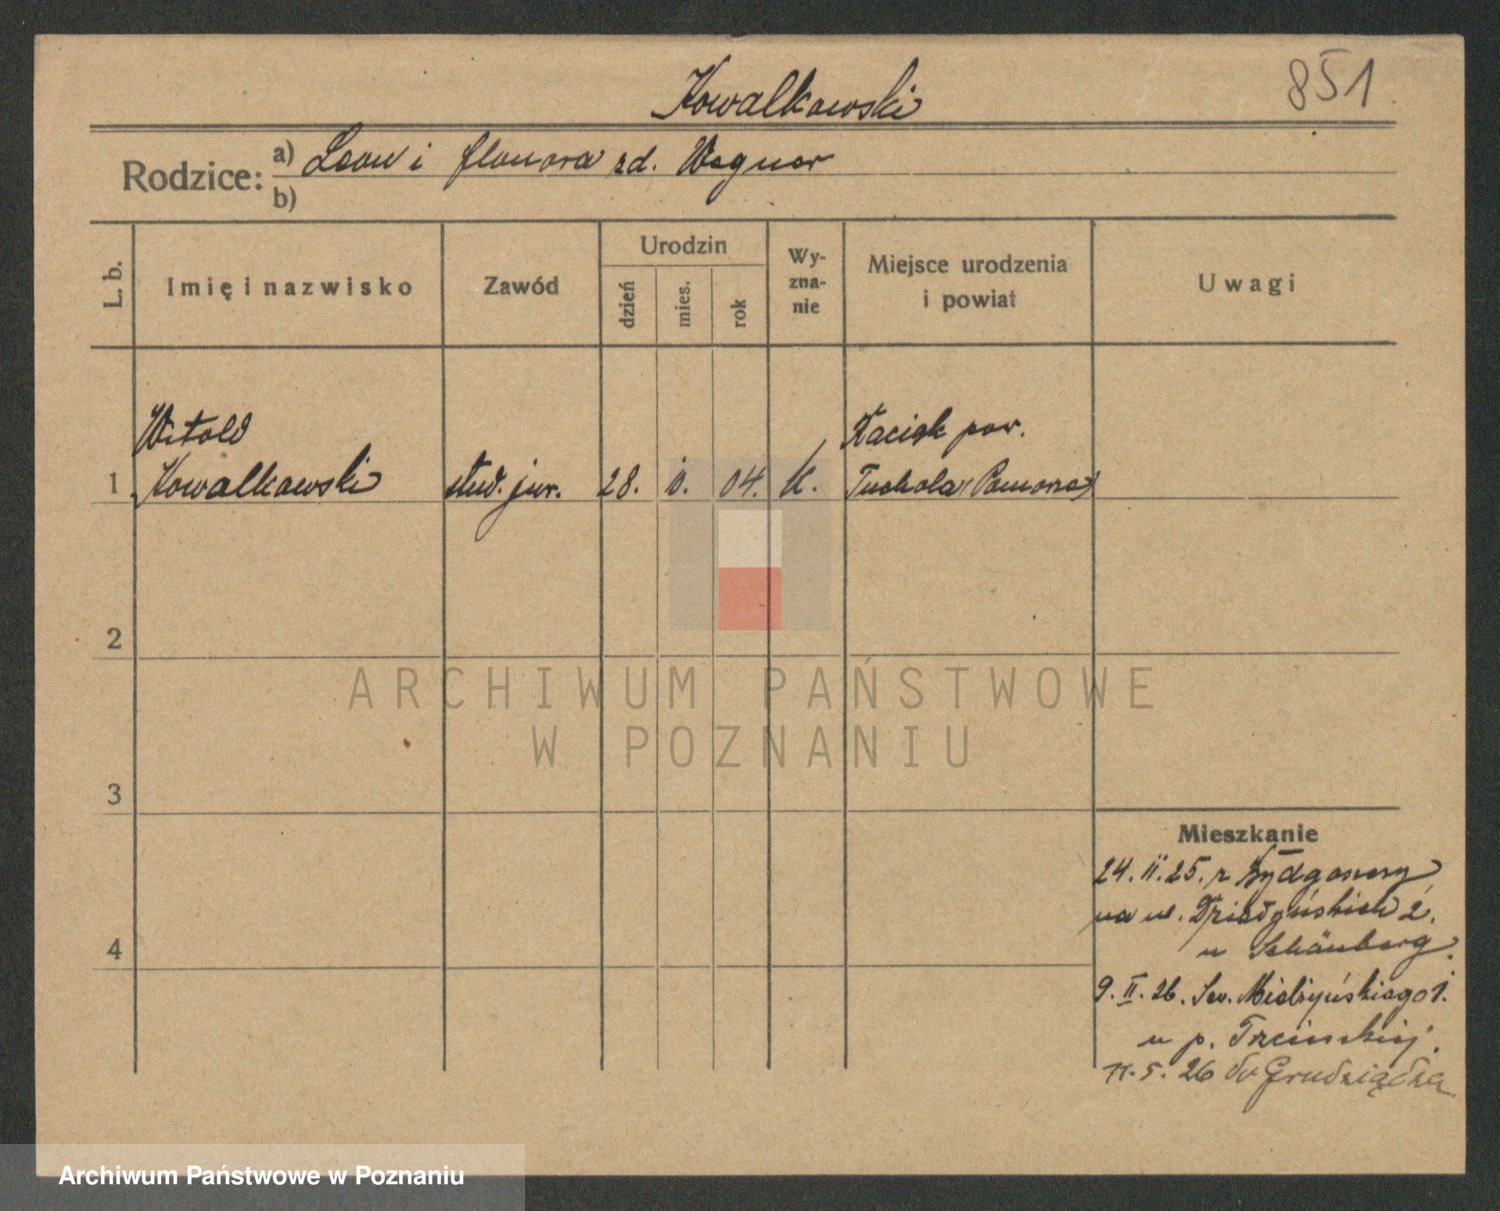 Kowalkowski
851
Rodzice: a) Leon i Elonora zd. Wegner
b)
L. b. Imię i nazwisko Zawód Urodzin dzień mies. rok Wy-zna-nie Miejsce urodzenia i powiat Uwagi
Witold Kaciek pow.
1 Kowalkowski stud. jur. 28. 04. K. Tuchola (Pomorze)
2
ARCHIWUM PAŃSTWOWE
W POZNANIU
3
Mieszkanie
24.II.25. z Bydgoszczy
na ul. Działyńskich 2.
u Schönberg.
4
9.II.26. Sew. Mielżyńskiego 1.
u p. Trzcinskiej.
11.5.26 do Grudziądza
Archiwum Państwowe w Poznaniu